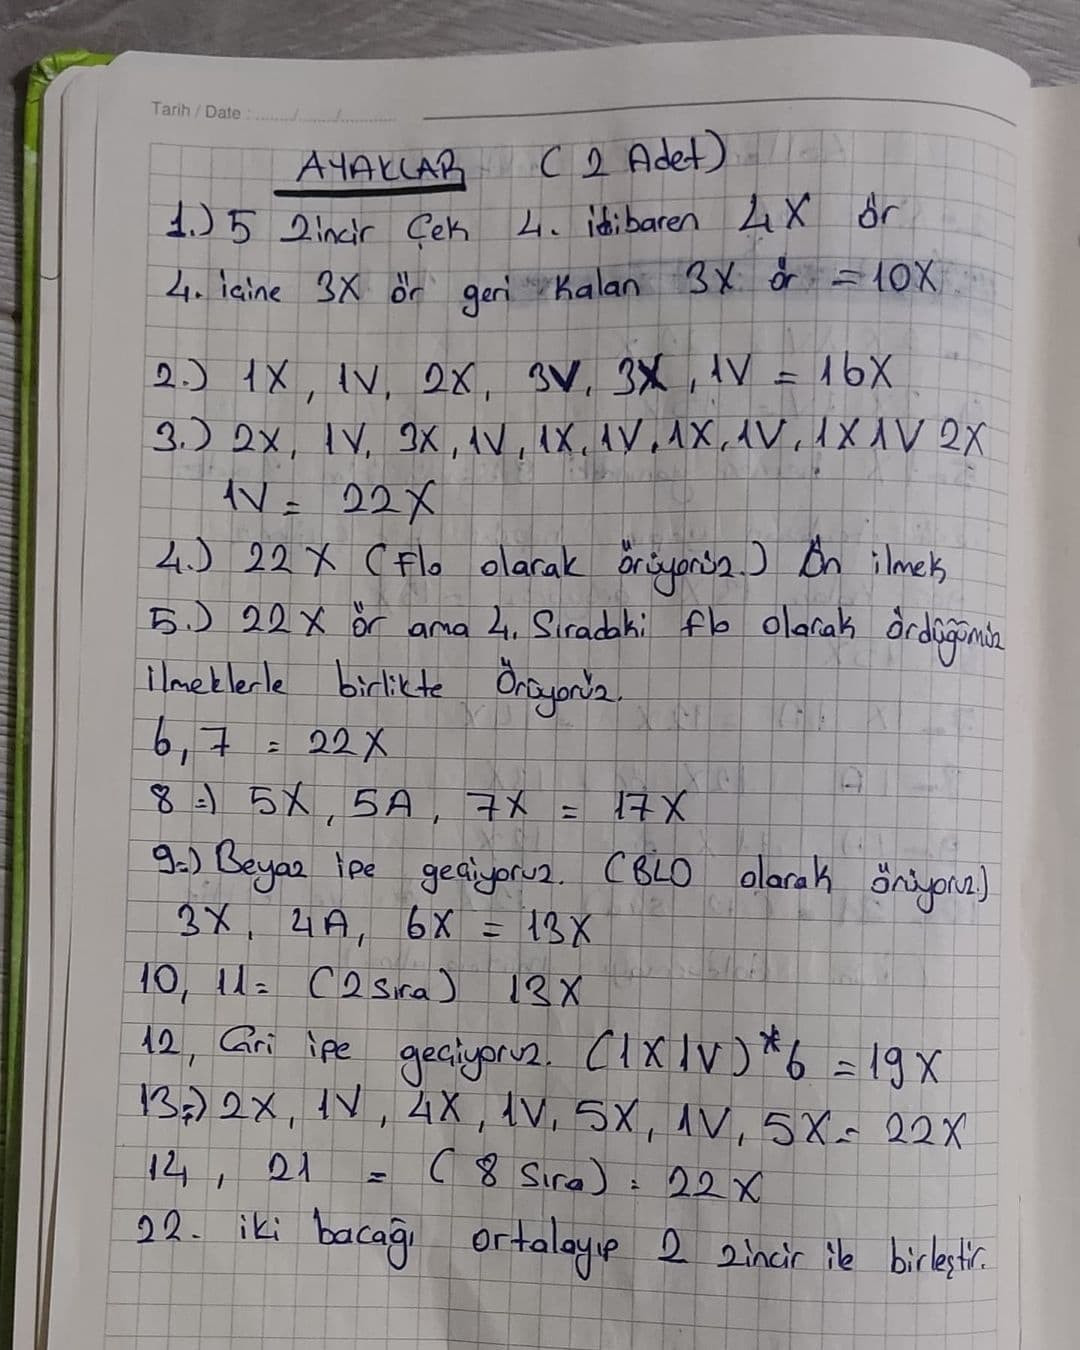 Tarih / Date : ......./......./.............
AYAKLAR ( 2 Adet)
1.) 5 Zincir Çek 4. itibaren 4X ör
4. içine 3X ör geri Kalan 3X ör = 10X
2.) 1X, 1V, 2X, 3V, 3X, 1V = 16X
3.) 2X, 1V, 3X, 1V, 1X, 1V, 1X, 1V, 1X 1V 2X
1V = 22X
4.) 22 X (Flo olarak örüyoruz.) Ön ilmek
5.) 22X ör ama 4. Siradaki flo olarak ördüğümüz
ilmeklerle birlikte Örüyoruz.
6, 7 = 22X
8 =) 5X, 5A, 7X = 17X
9=) Beyaz ipe geçiyoruz. (BLO olarak örüyoruz)
3X, 4A, 6X = 13X
10, 11= (2 sıra) 13X
12, Gri ipe geçiyoruz. (1X1V)*6 = 19X
13=) 2X, 1V, 4X, 1V, 5X, 1V, 5X = 22X
14, 21 = ( 8 Sıra) = 22X
22. iki bacağı ortalayıp 2 zincir ile birleştir.